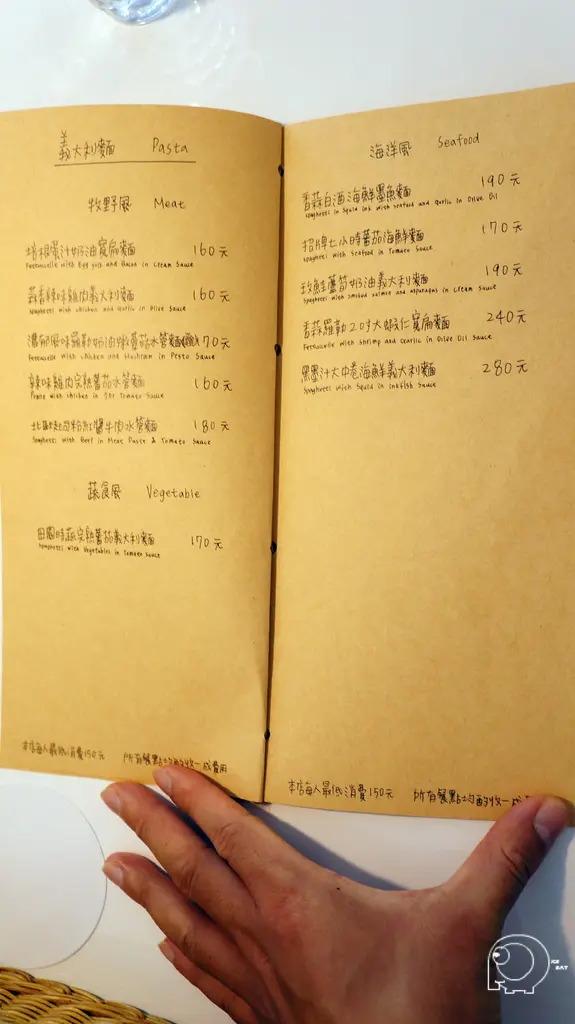 義大利麵 Pasta
牧野風 Meat
培根蛋汁奶油寬扁麵 160元
Fettuccelle with Egg yolk and Bacon in Cream Sauce
蒜香辣味雞肉義大利麵 160元
Spaghetti with chicken and garlic in Olive Sauce
濃郁風味羅勒奶油 蘑菇水管麵 170元
Fettuccelle with chicken and Mushroom in Pesto Sauce
辣味雞肉完熟蕃茄水管麵 160元
Penne with chicken in Tomato Sauce
粉紅醬牛肉水管麵 180元
Spaghetti with Beef in Meat Paste & Tomato Sauce
蔬食風 Vegetable
田園時蔬完熟蕃茄義大利麵 170元
Spaghetti with Vegetables in Tomato Sauce
本店每人最低消費150元 所有餐點均酌收一成費用
海洋風 Seafood
香蒜白酒海鮮墨魚麵 190元
Spaghetti in Squid ink with seafood and garlic in Olive Oil
招牌七小時蕃茄海鮮麵 170元
Spaghetti with Seafood in Tomato Sauce
鮭蘆筍奶油義大利麵 190元
Spaghetti with smoked salmon and asparagus in Cream Sauce
香蒜羅勒20寸大蝦仁寬扁麵 240元
Fettuccelle with Shrimp and Garlic in Olive Oil Sauce
黑墨汁大中卷海鮮義大利麵 280元
Spaghetti with Squid in Inkfish Sauce
本店每人最低消費150元 所有餐點均酌收一成
ICE
BAY